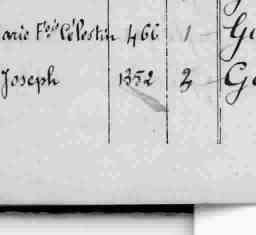 arie Fçois Célestin 466 1 G
Joseph 1352 2 G